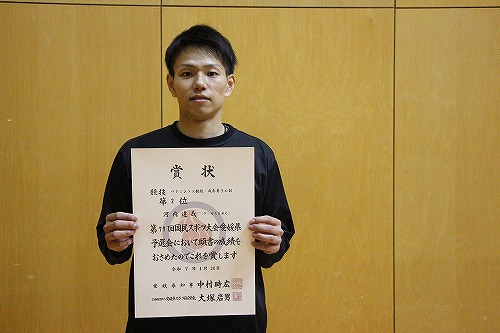 賞状
競技 バドミントン競技 成年男子の部
第2位
第79回国民スポーツ大会愛媛県
予選会において頭書の成績を
おさめたのでこれを賞します
令和7年4月20日
愛媛県知事 中村時広
大塚岩男